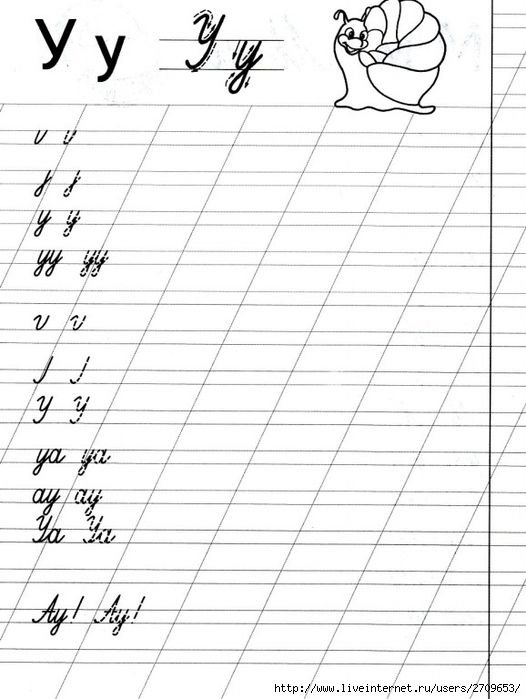 У у У у
у у
уу уу
У У
уа уа
ау ау
Уа Уа
Ау! Ау!
http://www.liveinternet.ru/users/2709653/